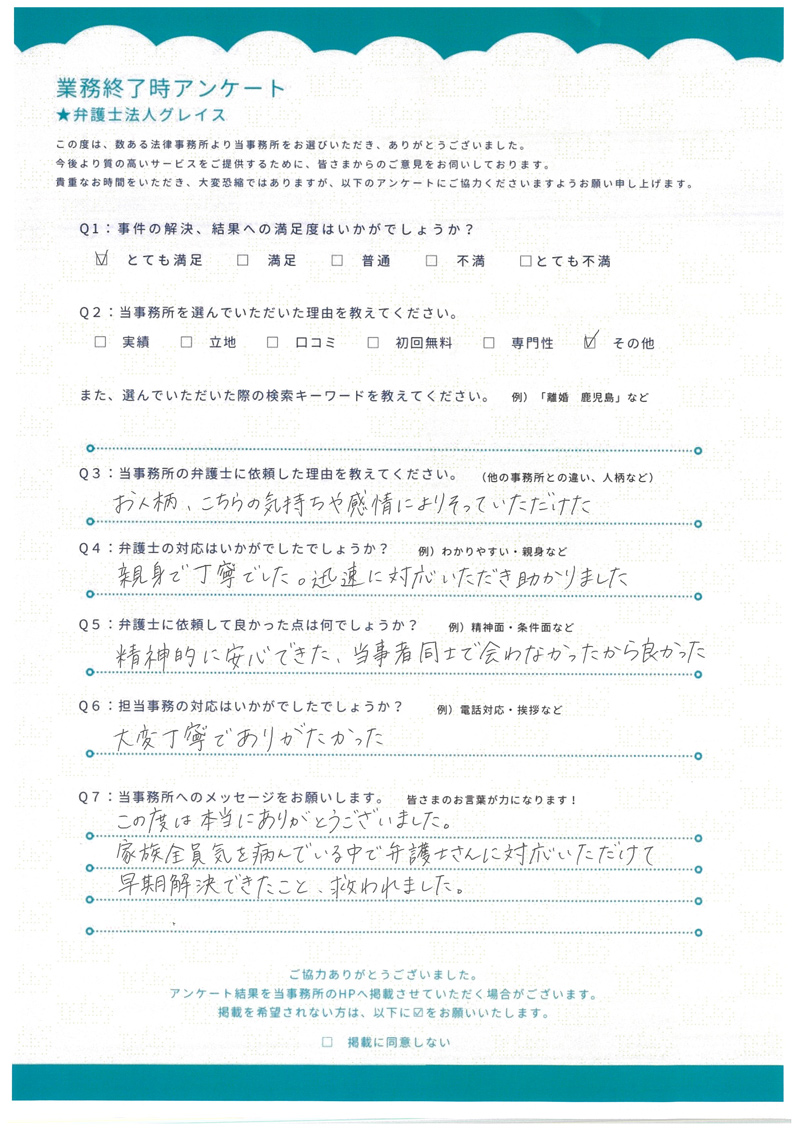 業務終了時アンケート
★弁護士法人グレイス
この度は、数ある法律事務所より当事務所をお選びいただき、ありがとうございました。
今後より質の高いサービスをご提供するために、皆さまからのご意見をお伺いしております。
貴重なお時間をいただき、大変恐縮ではありますが、以下のアンケートにご協力くださいますようお願い申し上げます。
Q1：事件の解決、結果への満足度はいかがでしょうか？
☑ とても満足 □ 満足 □ 普通 □ 不満 □とても不満
Q2：当事務所を選んでいただいた理由を教えてください。
□ 実績 □ 立地 □ 口コミ □ 初回無料 □ 専門性 ☑ その他
また、選んでいただいた際の検索キーワードを教えてください。 例）「離婚 鹿児島」など
Q3：当事務所の弁護士に依頼した理由を教えてください。 （他の事務所との違い、人柄など）
お人柄、こちらの気持ちや感情によりそっていただけた
Q4：弁護士の対応はいかがでしたでしょうか？ 例）わかりやすい・親身など
親身で丁寧でした。迅速に対応いただき助かりました
Q5：弁護士に依頼して良かった点は何でしょうか？ 例）精神面・条件面など
精神的に安心できた、当事者同士で会わなかったから良かった
Q6：担当事務の対応はいかがでしたでしょうか？ 例）電話対応・挨拶など
大変丁寧でありがたかった
Q7：当事務所へのメッセージをお願いします。 皆さまのお言葉が力になります！
この度は本当にありがとうございました。
家族全員気を病んでいる中で弁護士さんに対応いただけて
早期解決できたこと、救われました。
ご協力ありがとうございました。
アンケート結果を当事務所のHPへ掲載させていただく場合がございます。
掲載を希望されない方は、以下に☑をお願いいたします。
□ 掲載に同意しない